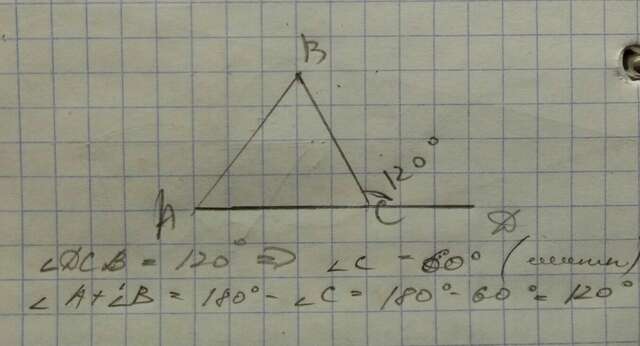 B
120°
A C D
∠DCB = 120° => ∠C = 60° (смежн)
∠A+∠B = 180° - ∠C = 180° - 60° = 120°